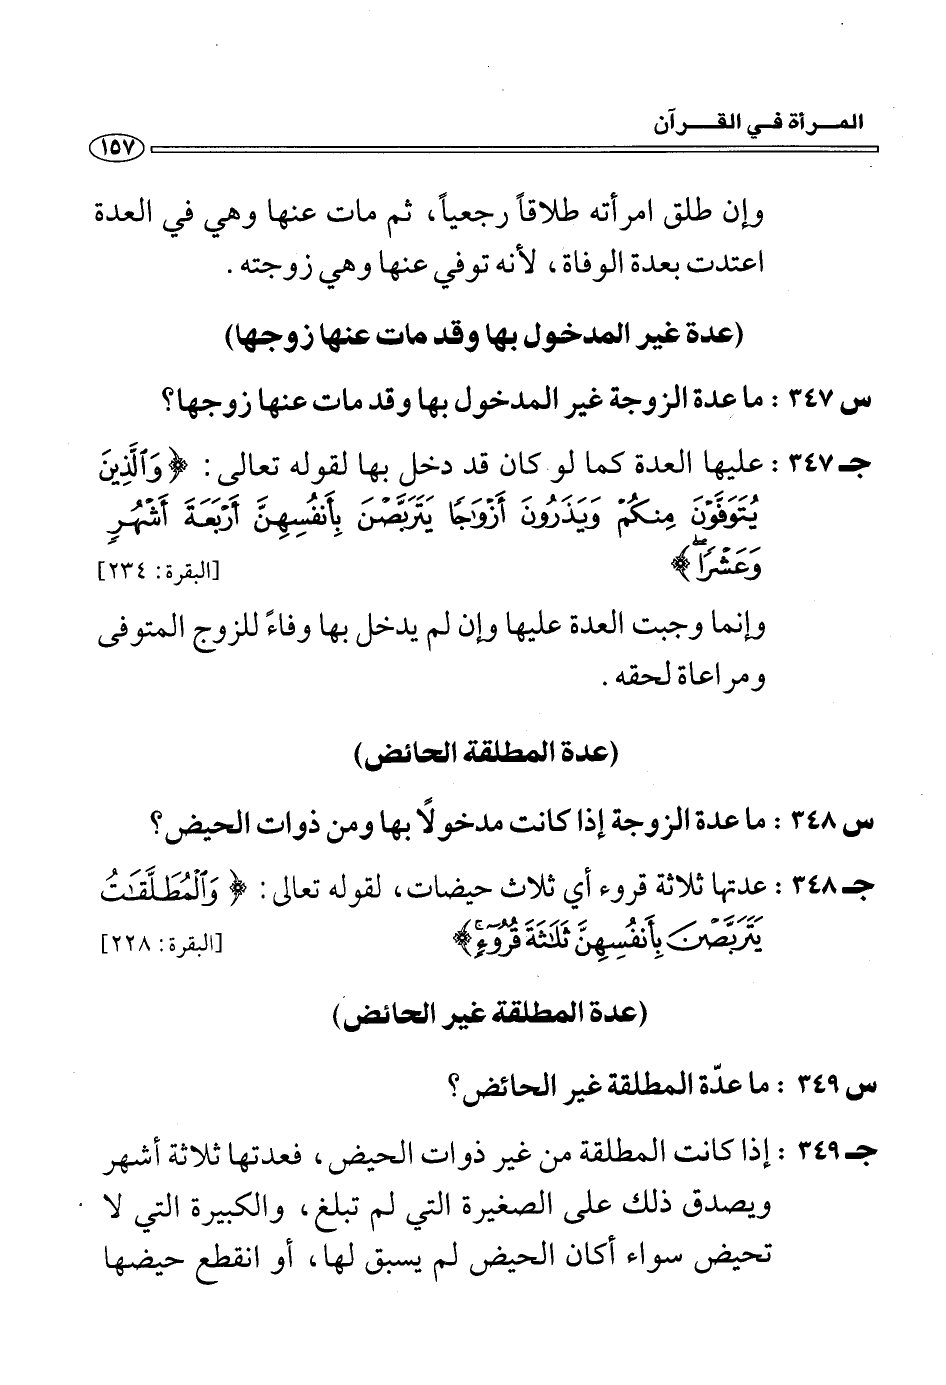 المـرأة فـي القـرآن
١٥٧
وإن طلق امرأته طلاقاً رجعياً، ثم مات عنها وهي في العدة
اعتدت بعدة الوفاة، لأنه توفي عنها وهي زوجته.
(عدة غير المدخول بها وقد مات عنها زوجها)
س ٣٤٧ : ما عدة الزوجة غير المدخول بها وقد مات عنها زوجها؟
جـ ٣٤٧ : عليها العدة كما لو كان قد دخل بها لقوله تعالى: ﴿ وَٱلَّذِينَ
يُتَوَفَّوْنَ مِنكُمْ وَيَذَرُونَ أَزْوَٰجًا يَتَرَبَّصْنَ بِأَنفُسِهِنَّ أَرْبَعَةَ أَشْهُرٍ
وَعَشْرًا ۖ﴾ [البقرة: ٢٣٤]
وإنما وجبت العدة عليها وإن لم يدخل بها وفاءً للزوج المتوفى
ومراعاة لحقه.
(عدة المطلقة الحائض)
س ٣٤٨ : ما عدة الزوجة إذا كانت مدخولاً بها ومن ذوات الحيض؟
جـ ٣٤٨ : عدتها ثلاثة قروء أي ثلاث حيضات، لقوله تعالى: ﴿ وَٱلْمُطَلَّقَٰتُ
يَتَرَبَّصْنَ بِأَنفُسِهِنَّ ثَلَٰثَةَ قُرُوٓءٍ ۚ﴾ [البقرة: ٢٢٨]
(عدة المطلقة غير الحائض)
س ٣٤٩ : ما عدّة المطلقة غير الحائض؟
جـ ٣٤٩ : إذا كانت المطلقة من غير ذوات الحيض، فعدتها ثلاثة أشهر
ويصدق ذلك على الصغيرة التي لم تبلغ، والكبيرة التي لا
تحيض سواء أكان الحيض لم يسبق لها، أو انقطع حيضها